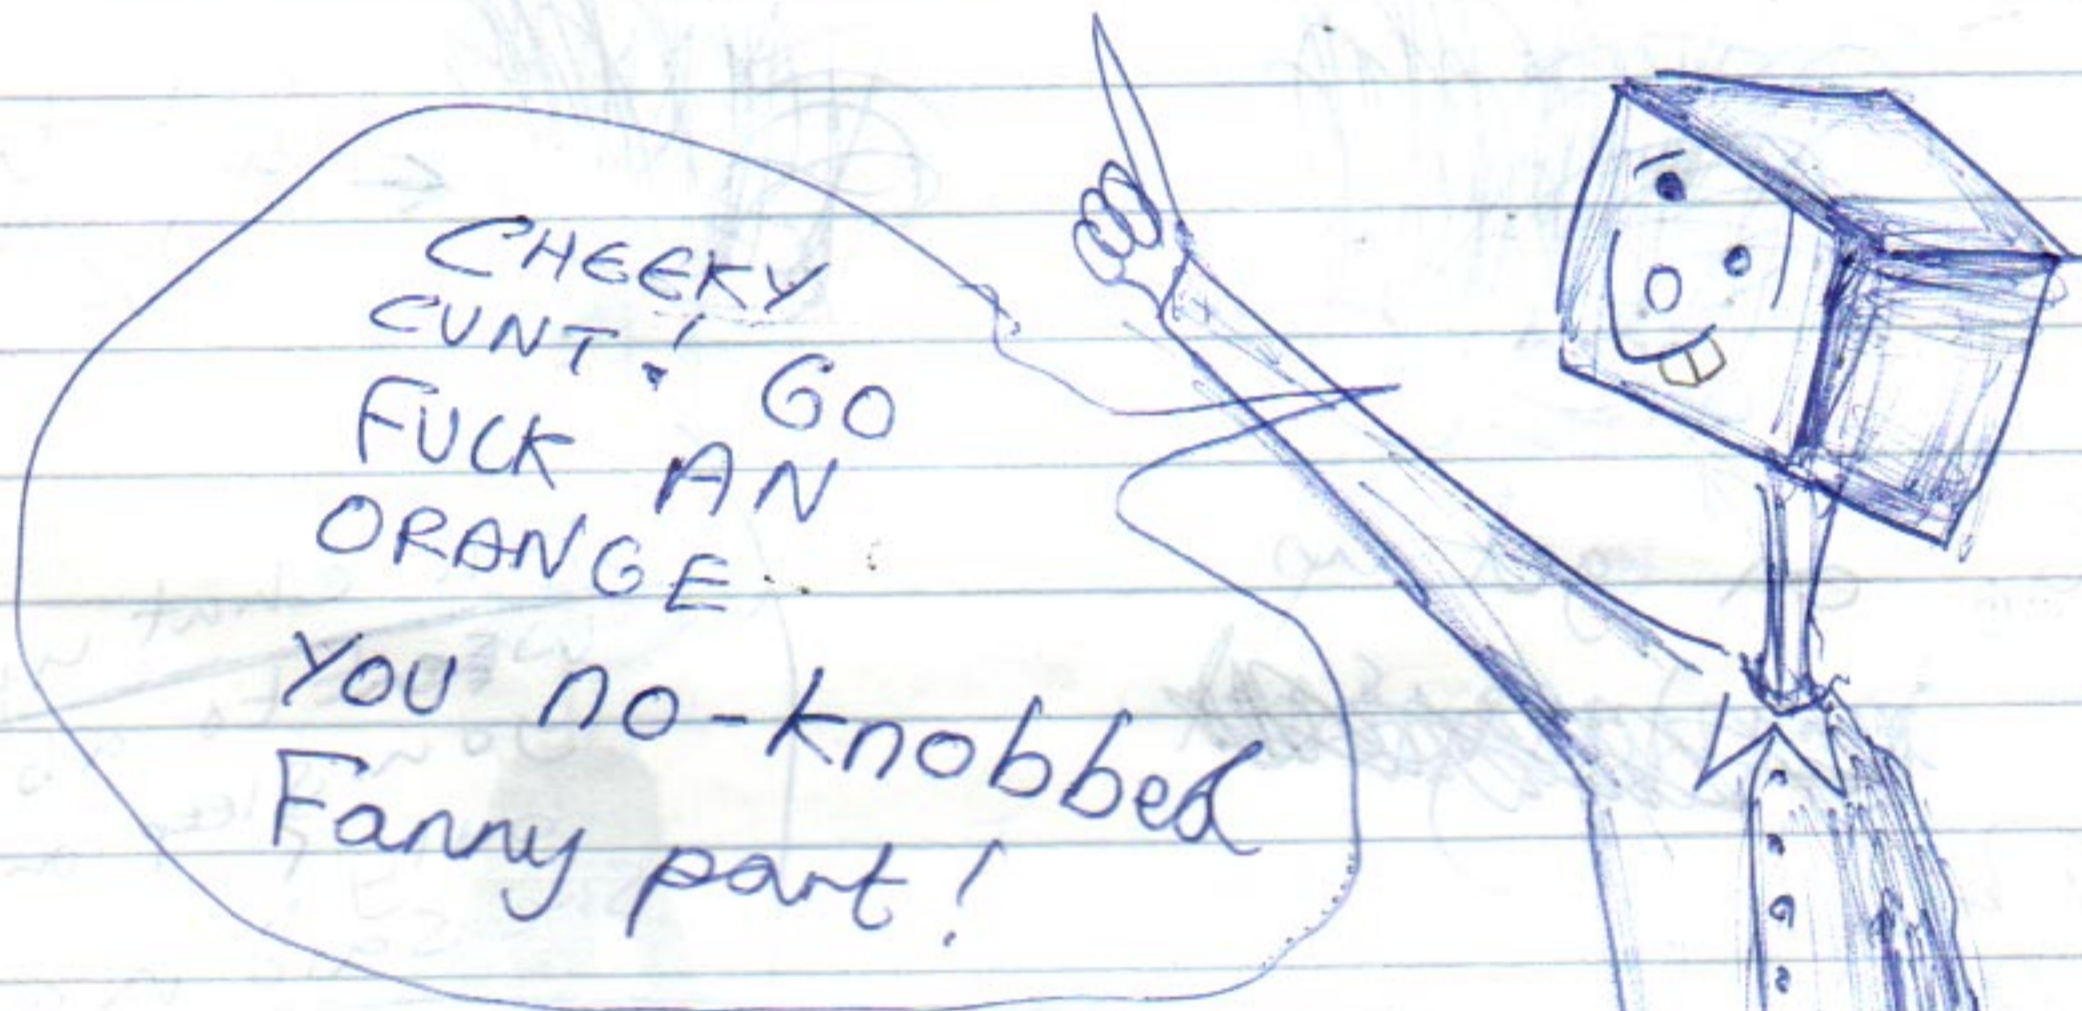 CHEEKY
CUNT! GO
FUCK AN
ORANGE
You no-knobbed
Fanny part!